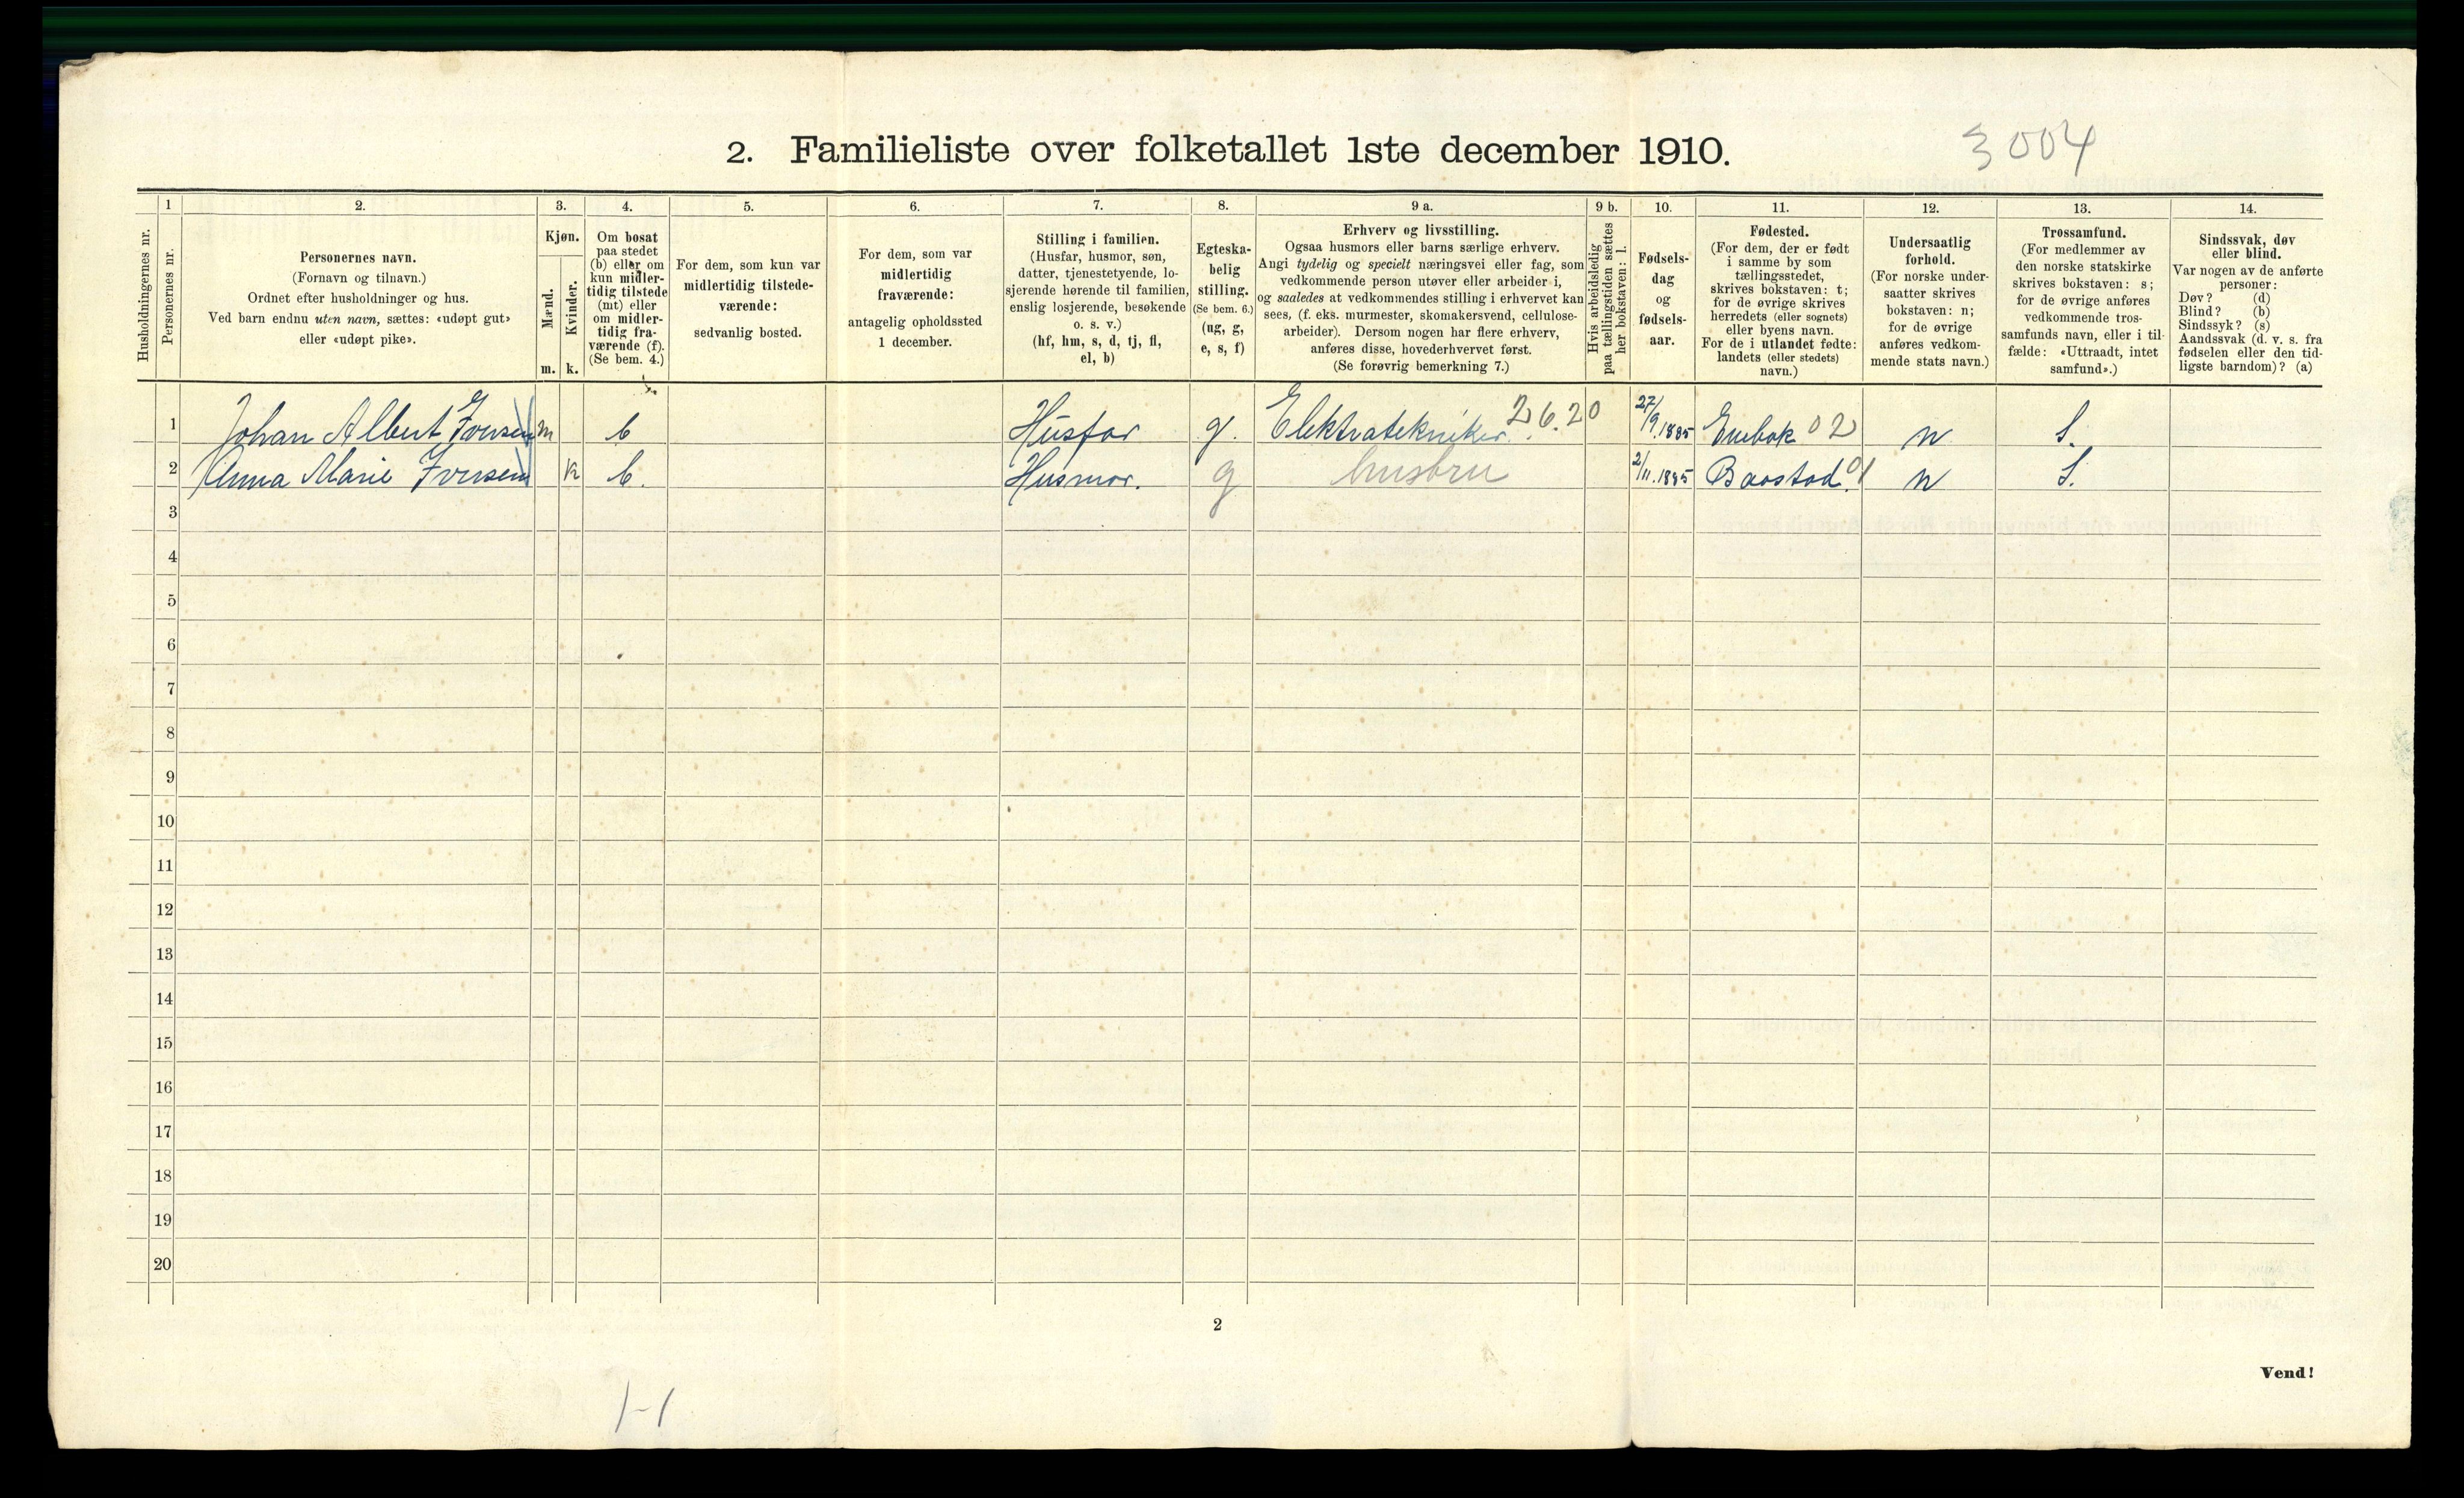 2. Familieliste over folketallet 1ste december 1910.
3004
Husholdningernes nr.
1
Personernes nr.
2.
Personernes navn.
(Fornavn og tilnavn.)
Ordnet efter husholdninger og hus.
Ved barn endnu uten navn, sættes: «udøpt gut»
eller «udøpt pike».
3.
Kjøn.
Mænd.
Kvinder.
m.
k.
4.
Om bosat
paa stedet
(b) eller om
kun midler-
tidig tilstede
(mt) eller
om midler-
tidig fra-
værende (f).
(Se bem. 4.)
5.
For dem, som kun var
midlertidig tilstede-
værende:
sedvanlig bosted.
6.
For dem, som var
midlertidig
fraværende:
antagelig opholdssted
1 december.
7.
Stilling i familien.
(Husfar, husmor, søn,
datter, tjenestetyende, lo-
sjerende hørende til familien,
enslig losjerende, besøkende
o. s. v.)
(hf, hm, s, d, tj, fl,
el, b)
8.
Egteska-
belig
stilling.
(Se bem. 6.)
(ug, g,
e, s, f)
9 a.
Erhverv og livsstilling.
Ogsaa husmors eller barns særlige erhverv.
Angi tydelig og specielt næringsvei eller fag, som
vedkommende person utøver eller arbeider i,
og saaledes at vedkommendes stilling i erhvervet kan
sees, (f. eks. murmester, skomakersvend, cellulose-
arbeider). Dersom nogen har flere erhverv,
anføres disse, hovederhvervet først.
(Se forøvrig bemerkning 7.)
9 b.
Hvis arbeidsledig
paa tællingstiden sættes
her bokstaven: l.
10.
Fødsels-
dag
og
fødsels-
aar.
11.
Fødested.
(For dem, der er født
i samme by som
tællingsstedet,
skrives bokstaven: t;
for de øvrige skrives
herredets (eller sognets)
eller byens navn.
For de i utlandet fødte:
landets (eller stedets)
navn.)
12.
Undersaatlig
forhold.
(For norske under-
saatter skrives
bokstaven: n;
for de øvrige
anføres vedkom-
mende stats navn.)
13.
Trossamfund.
(For medlemmer av
den norske statskirke
skrives bokstaven: s;
for de øvrige anføres
vedkommende tros-
samfunds navn, eller i til-
fælde: «Uttraadt, intet
samfund».)
14.
Sindssvak, døv
eller blind.
Var nogen av de anførte
personer:
Døv? (d)
Blind? (b)
Sindssyk? (s)
Aandssvak (d. v. s. fra
fødselen eller den tid-
ligste barndom)? (a)
1 Johan Albert Iversen m b Husfar g. Elektratekniker. 26.20 27/9.1885 Enebak 02 n S.
2 Anna Marie Iversen k b. Husmor. g husbru 2/11.1885 Baastad. 01 n S.
3
4
5
6
7
8
9
10
11
12
13
14
15
16
17
18
19
20
2
Vend!
1-1